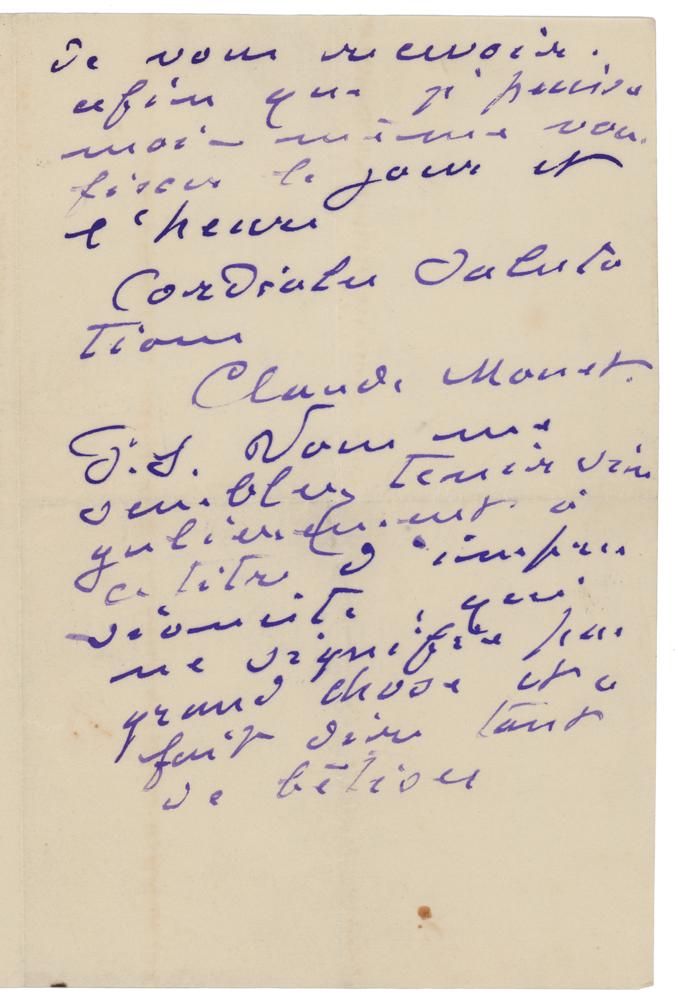 de vous recevoir.
afin que je puisse
moi-même vous
fixer le jour et
l'heure
Cordiales Saluta
tions
Claude Monet.
P.S. Vous me
semblez tenir sin
gulièrement à
ce titre d'impres
sioniste, qui
ne signifie pas
grand chose et a
fait dire tant
de bêtises